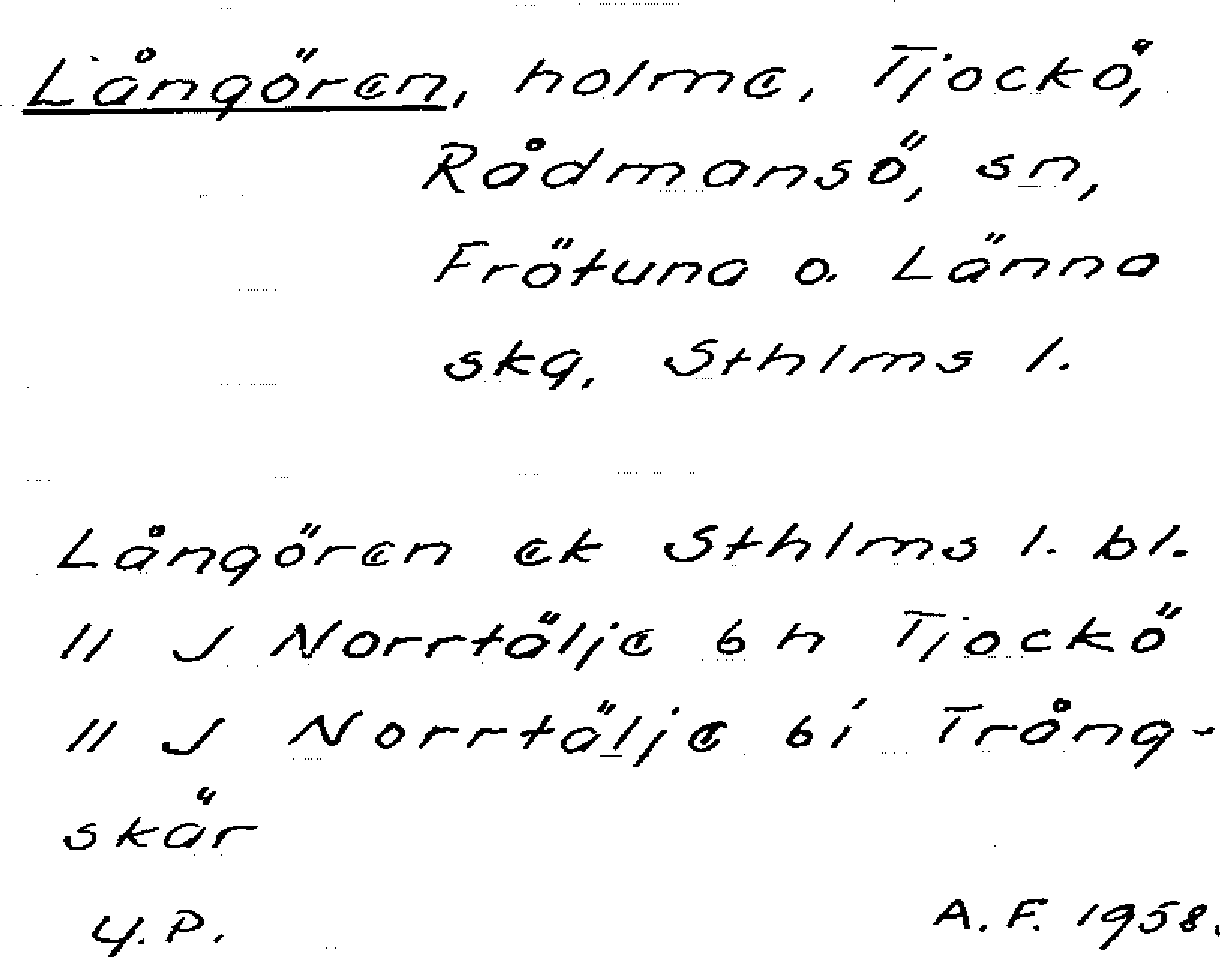 Långören, holme, Tjockö,
Rådmansö, sn,
Frötuna o. Länna
skg, Sthlms l.
Långören ek Sthlms l. bl.
" J Norrtälje 6h Tjockö
" J Norrtälje 6i Trång-
skär
Y.P. A.F. 1958.